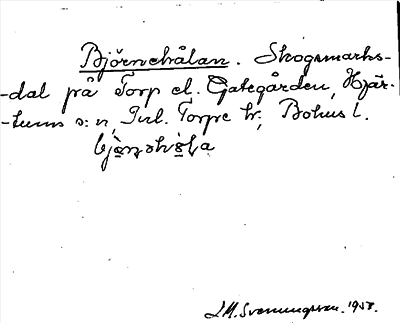 Björnehålan. Skogsmarks-
-dal på Torp el. Gategården, Hjär-
-tums s:n, Inl. Torpe hr., Bohus l.
J.M. Svenungsson. 1958.